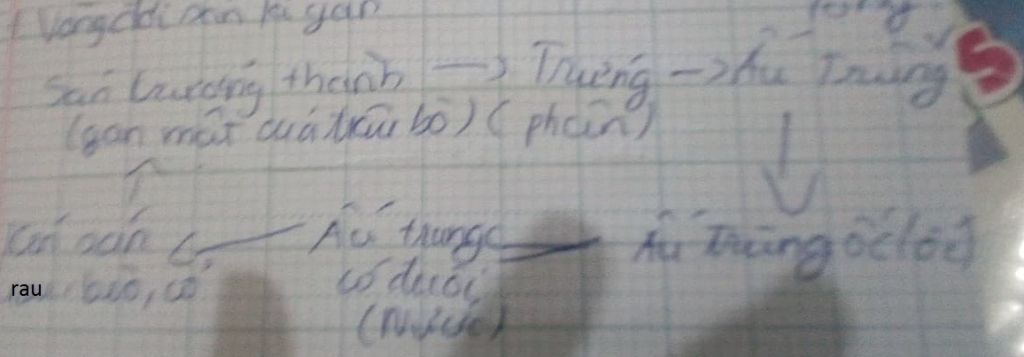 Vòng đời sán lá gan
Sán trưởng thành → Trứng → Ấu Trùng
(gan mật của trâu bò) (phân)
Kén sán ← Ấu trùng Ấu Trùng ốc (ốc)
rau bèo, cỏ có đuôi
(Nước)